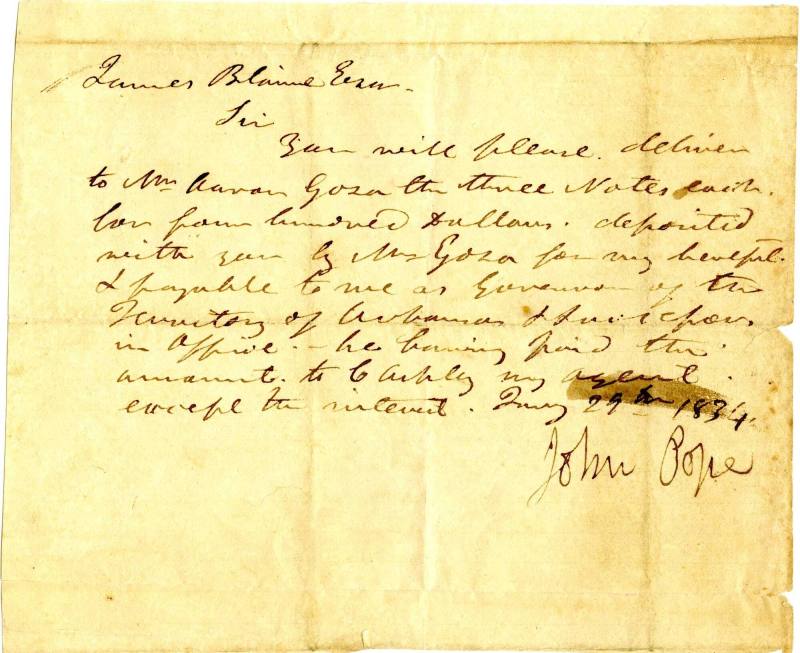 James Blaine Esqr
Sir
You will please deliver
to Mr Aaron Goza the three Notes each
for four hundred Dollars. deposited
with you by Mr Goza for my benefit
& payable to me as Governor of the
Territory of Arkansas & Successors
in Office - he having paid the
amount to C Ashley my agent
except the interest. Jany 29th 1834
John Pope